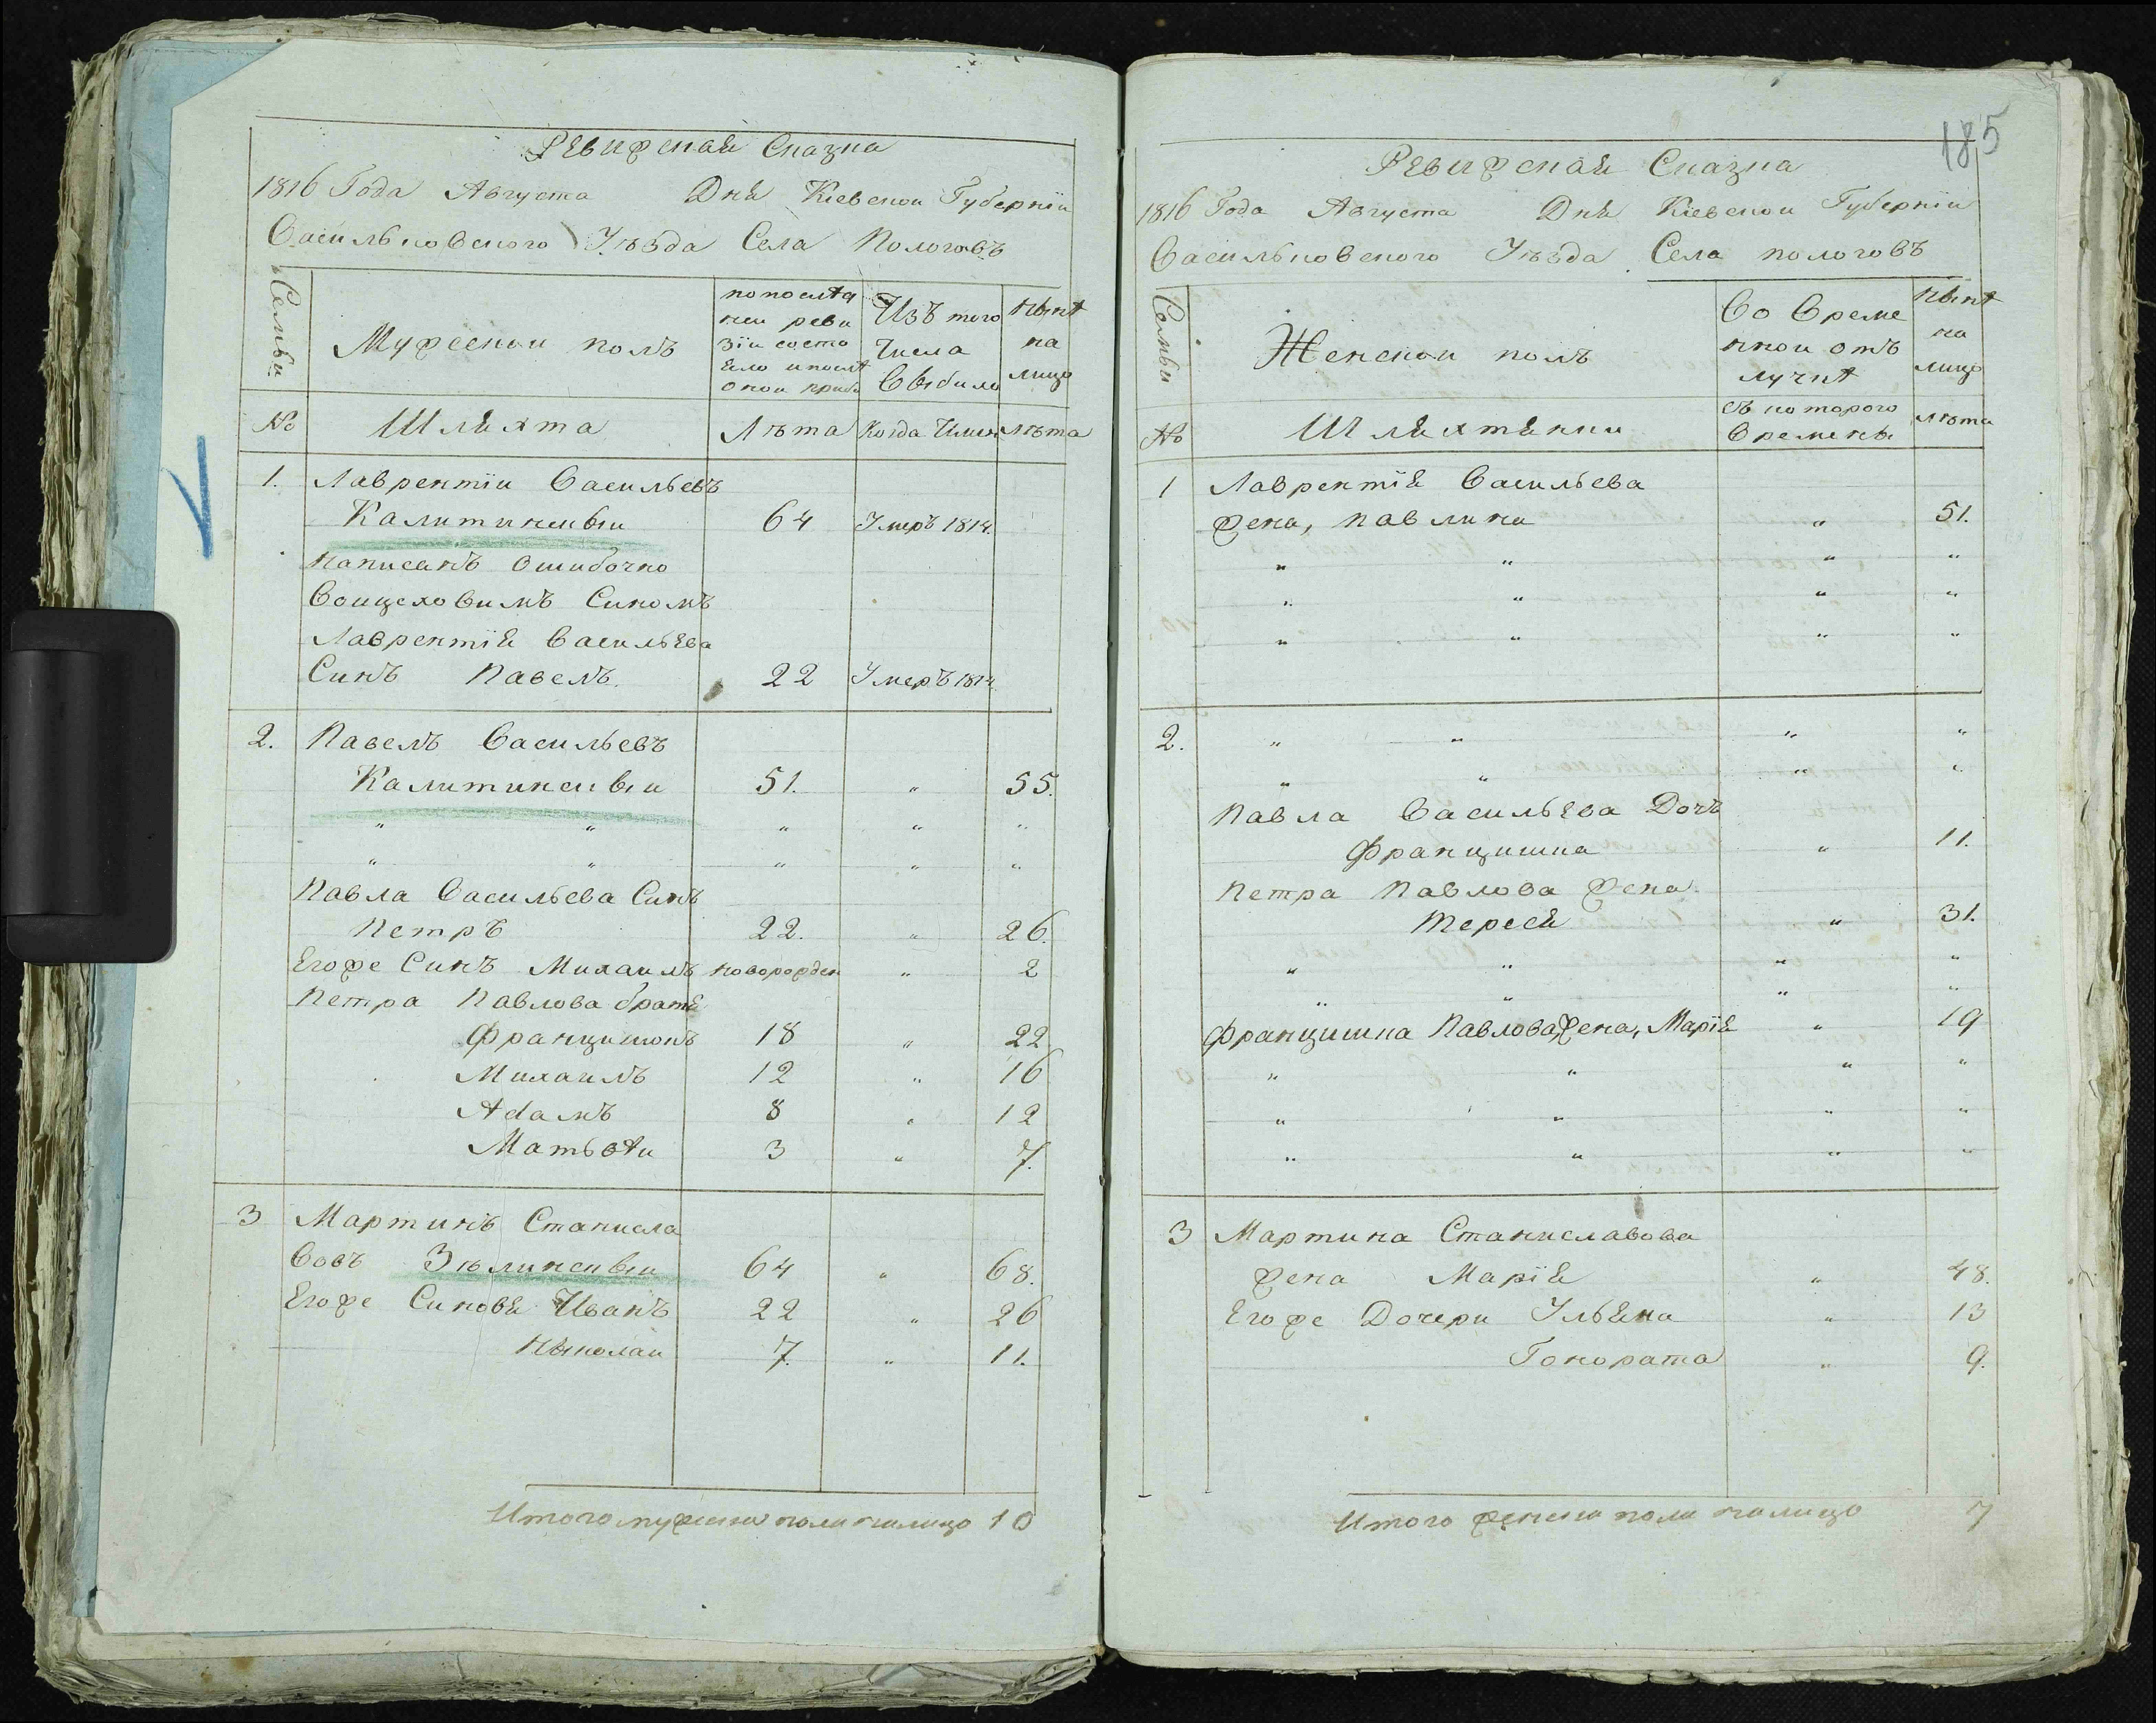 Ревизская Сказка
1816 Года Августа Дня Кіевской Губерніи
Васильковского Уезда Села Пологовъ
Семьи
Мужеской полъ
по последней ревизіи состояло и после оной прибы
Изъ того Числа Выбыло
Ныне на лицо
№
Шляхта
Лета
Когда Имян
Лета
1. Лаврентіи Васильевъ
Калитинскыи 64 Умеръ 1814.
написанъ Ошибочно
Воицеховимъ Синомъ
Лаврентія Васильева
Синъ Павелъ. 22 Умеръ 1814
2. Павелъ Васильевъ
Калитинскыи 51. " 55.
" " " " "
" " " " "
Павла Васильева Синъ
Петръ 22. " 26.
Егоже Синъ Михаилъ новорожден " 2
Петра Павлова братя
Францишокъ 18 " 22
Михаилъ 12 " 16
Adaмъ 8 " 12
Матвеи 3 " 7.
3 Мартинъ Станисла
вовъ Зелинскыи 64 " 68.
Егоже Синовя Иванъ 22 " 26
Ныколаи 7. " 11.
Итого мужеска пола налицо 10
185
Ревизская Сказка
1816 Года Августа Дня Кіевской Губерніи
Васильковского Уезда Села пологовъ
Семьи
Женской полъ
Во Временной отлучке
Ныне на лицо
№
Шляхтянки
съ которого Времены
лета
1 Лаврентія Васильева
жена, павлина " 51.
" " " "
" " " "
" " " "
2. " " " "
" " " "
Павла Васильева Дочъ
Францишка " 11.
Петра Павлова жена.
Тереся " 31.
" " " "
" " " "
Францишка Павлова, жена, Марія " 19
" " " "
" " " "
" " " "
3 Мартина Станиславова
жена Марія " 48.
Егоже Дочери Ульяна " 13
Гонората " 9.
Итого женска пола налицо 7